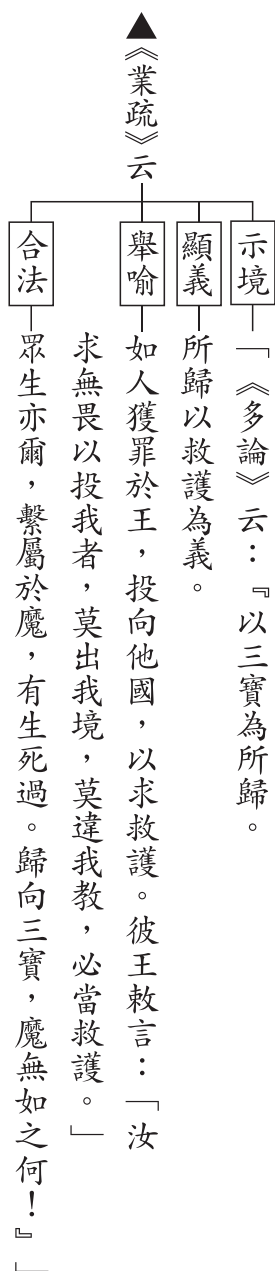 ▲《業疏》云
示境
「《多論》云：『以三寶為所歸。
顯義
所歸以救護為義。
舉喻
如人獲罪於王，投向他國，以求救護。彼王敕言：「汝
求無畏以投我者，莫出我境，莫違我教，必當救護。」
合法
眾生亦爾，繫屬於魔，有生死過。歸向三寶，魔無如之何！』」